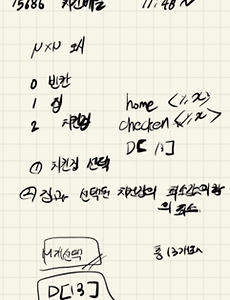 15686 치킨배달 11:48
N×N 도시
0 빈칸
1 집
2 치킨집
home <i,x>
checken <i,x>
D[13]
① 치킨집 선택
② 집과 선택된 치킨집의 최소
의 최소
M개 선택
총 13개
D[13]